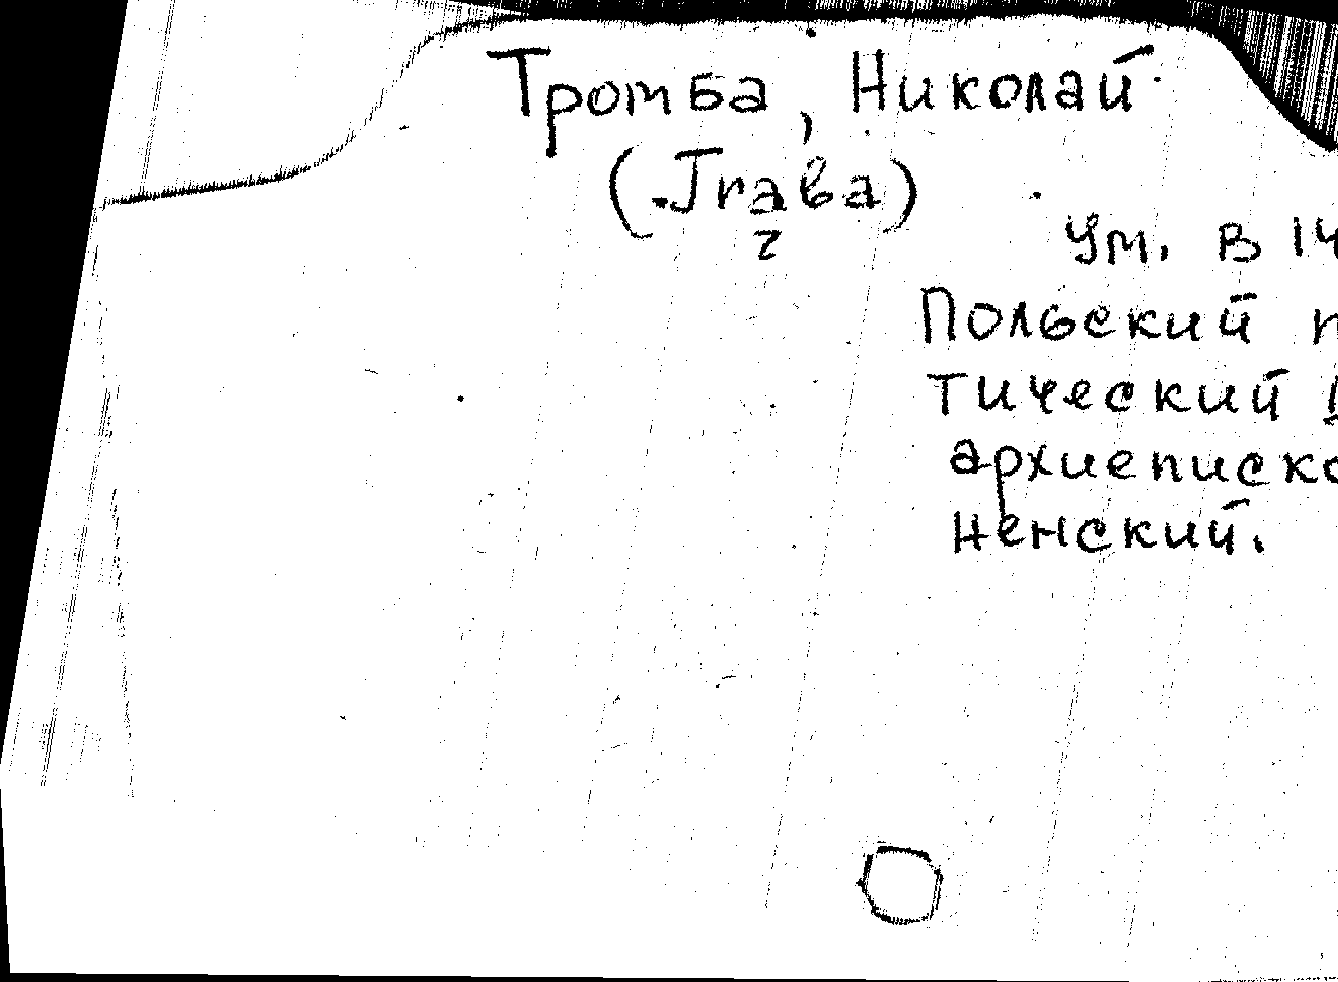 Тромба, Николай
ум. в 14
Польский п
тический
архиеписко
ненский.